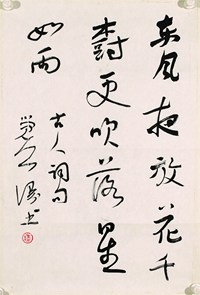 东风夜放花千
树更吹落星
如雨
古人词句